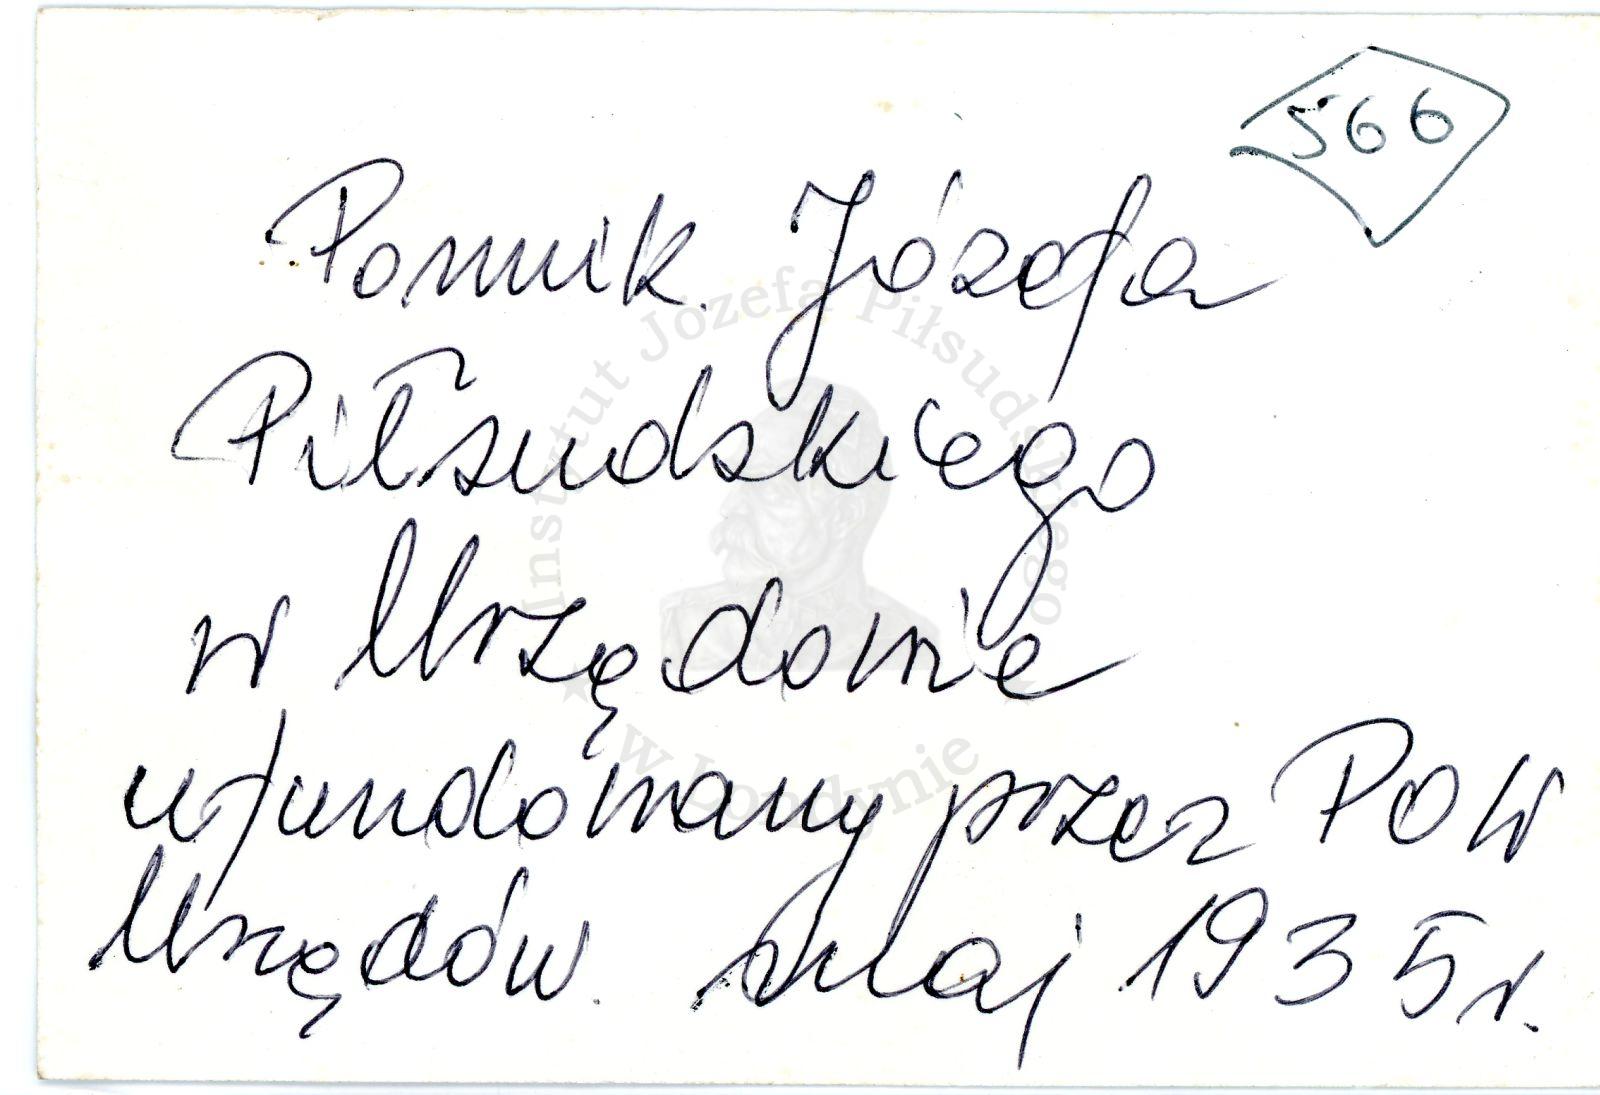 566
Pomnik Józefa
Piłsudskiego
w Urzędowie
ufundowany przez POW
Urzędów. Maj 1935 r.
Instytut Józefa Piłsudskiego
w Londynie